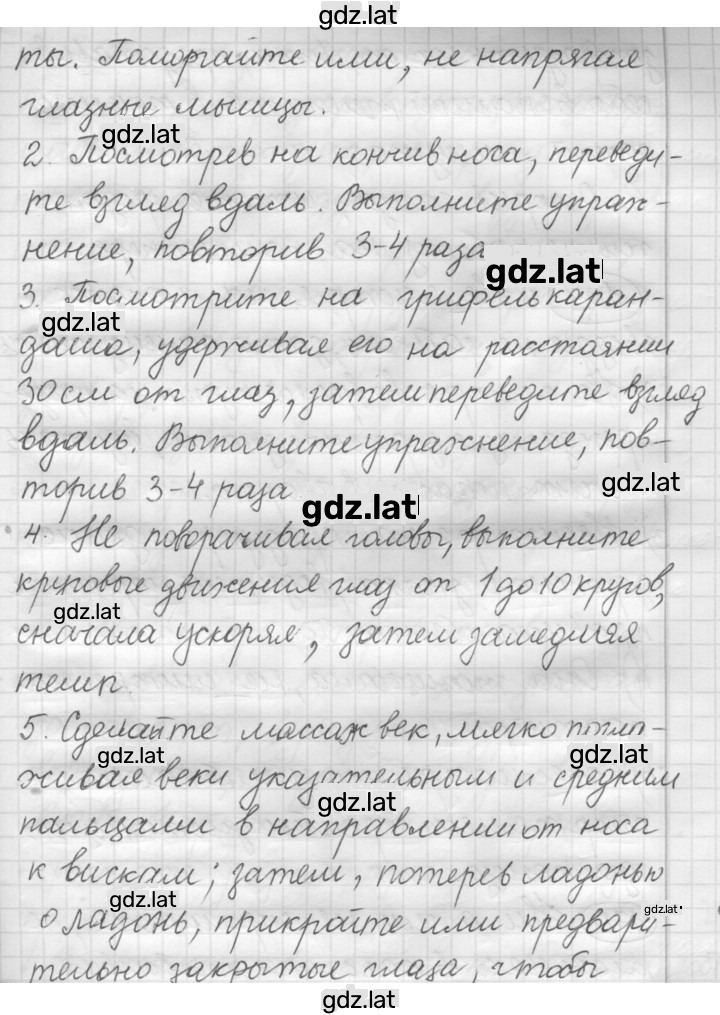 gdz.lat
ты. Поморгайте ими, не напрягая
глазные мышцы.
gdz.lat
2. Посмотрев на кончив носа, переведи-
те взгляд вдаль. Выполните упраж-
нение, повторив 3-4 раза
gdz.lat
3. Посмотрите на грифель каран-
gdz.lat
даша, удерживая его на расстоянии
30 см от глаз, затем переведите взгляд
вдаль. Выполните упражнение, пов-
gdz.lat
торив 3-4 раза
gdz.lat
4. Не поворачивая головы, выполните
круговые движения глаз от 1 до 10 кругов,
gdz.lat
сначала ускоряя, затем замедляя
темп.
5. Сделайте массаж век, мягко погла-
gdz.lat
gdz.lat
живая веки указательным и средним
gdz.lat
пальцами в направлении от носа
к вискам; затем, потерев ладонью
gdz.lat
gdz.lat
о ладонь, прикройте ими предвари-
тельно закрытые глаза, чтобы
gdz.lat